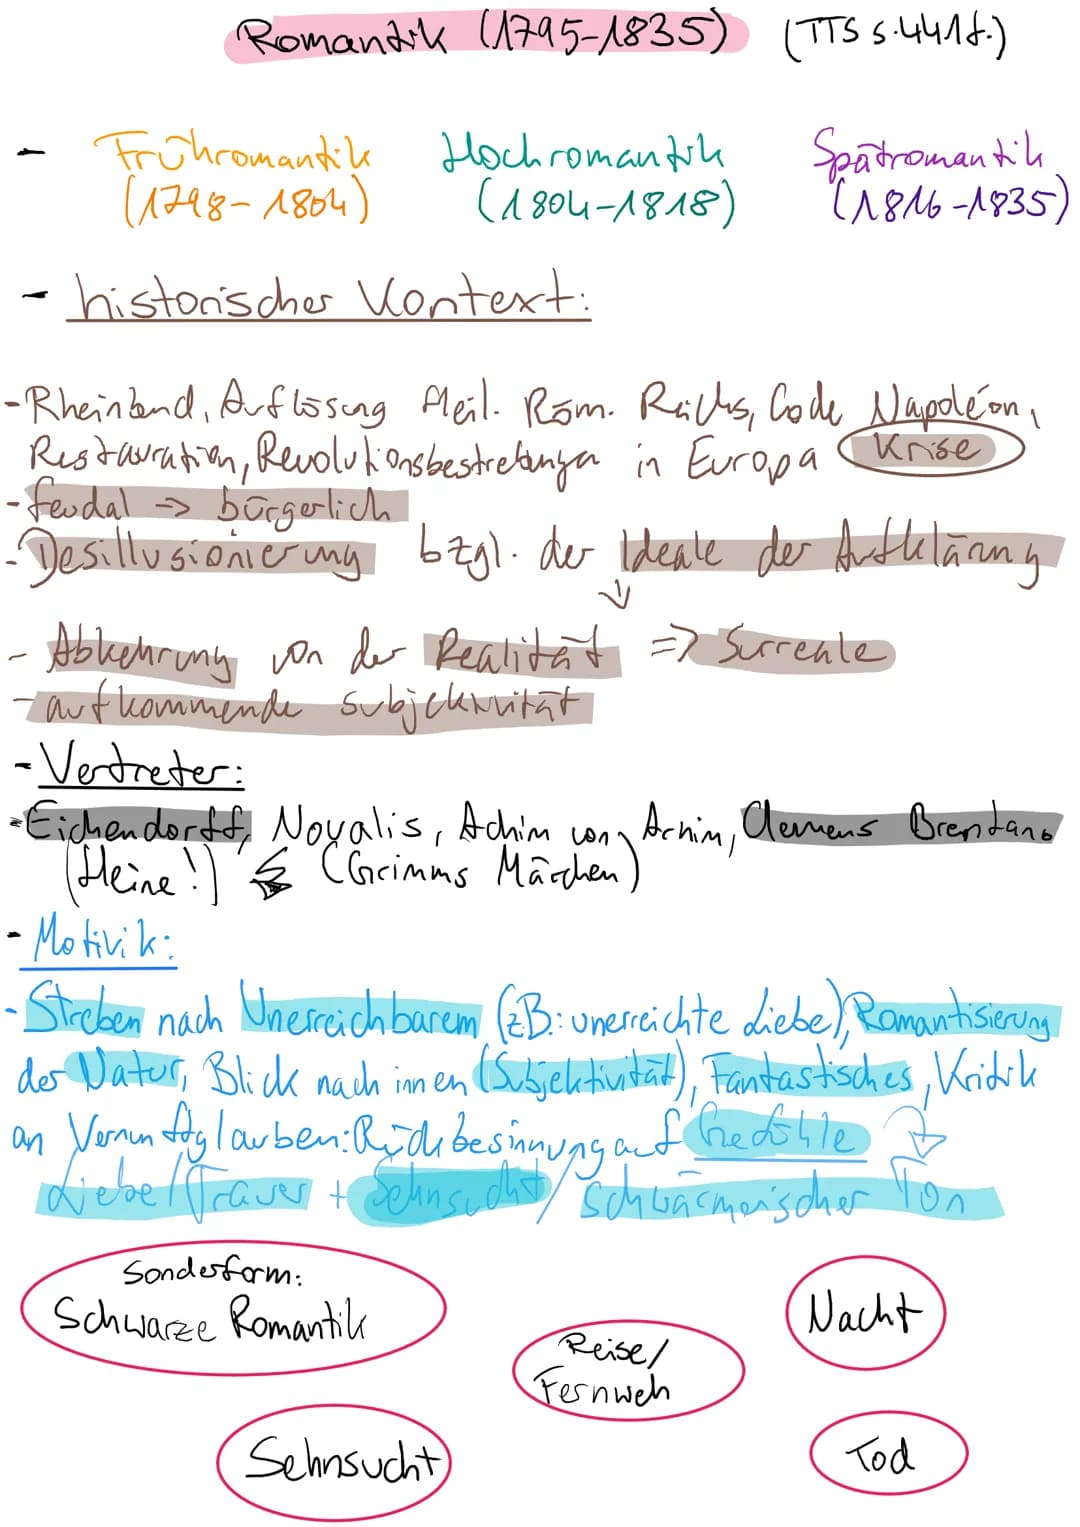 Romantik (1795-1835) (TTS S.441f.)
- Frühromantik Hochromantik Spätromantik
(1798-1804) (1804-1818) (1816-1835)
- historischer Kontext:
- Rheinbund, Auflösung Heil. Röm. Reichs, Code Napoléon,
Restauration, Revolutionsbestrebungen in Europa Krise
- feudal => bürgerlich
- Desillusionierung bzgl. der Ideale der Aufklärung
↓
- Abkehrung von der Realität => Surreale
- aufkommende Subjektivität
- Vertreter:
- Eichendorff, Novalis, Achim von Arnim, Clemens Brentano
(Heine!) (Grimms Märchen)
- Motivik:
- Streben nach Unerreichbarem (z.B.: unerreichte Liebe), Romantisierung
der Natur, Blick nach innen (Subjektivität), Fantastisches, Kritik
an Vernunftglauben: Rückbesinnung auf Gefühle
Liebe/Trauer + Sehnsucht / schwärmerischer Ton
Sonderform:
Schwarze Romantik
Nacht
Reise/
Fernweh
Sehnsucht
Tod